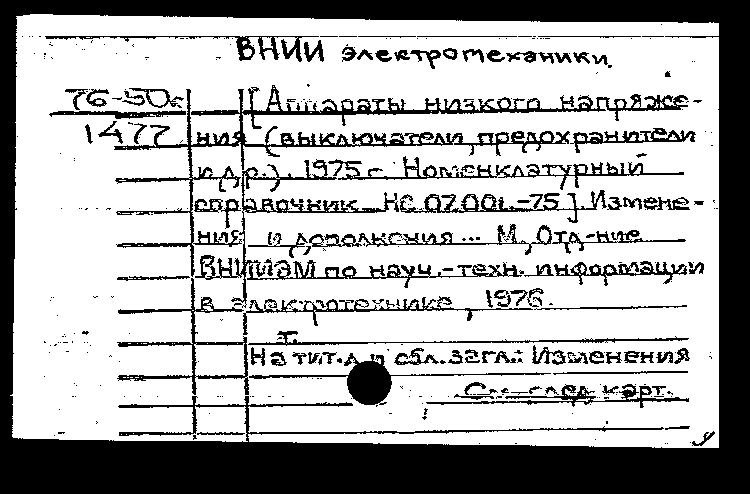 ВНИИ электротеханики.
76-50к [Аппараты низкого напряже-
1477 ния (выключатели, предохранители
и др.). 1975 г. Номенклатурный
справочник НС 07.001.-75]. Измене-
ния и дополнения... М., Отд-ние
ВНИИЭМ по науч.-техн. информации
в электротехнике, 1976.
т.
На тит.л и обл.загл.: Изменения
См. след карт.